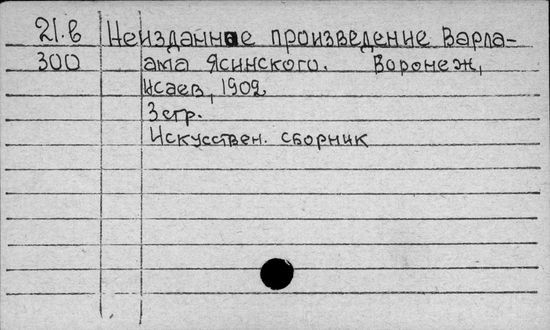 21.в Неизданное произведение Варла-
300 ама Ясинского. Воронеж,
Исаев, 1902
3 стр.
Искусствен. сборник